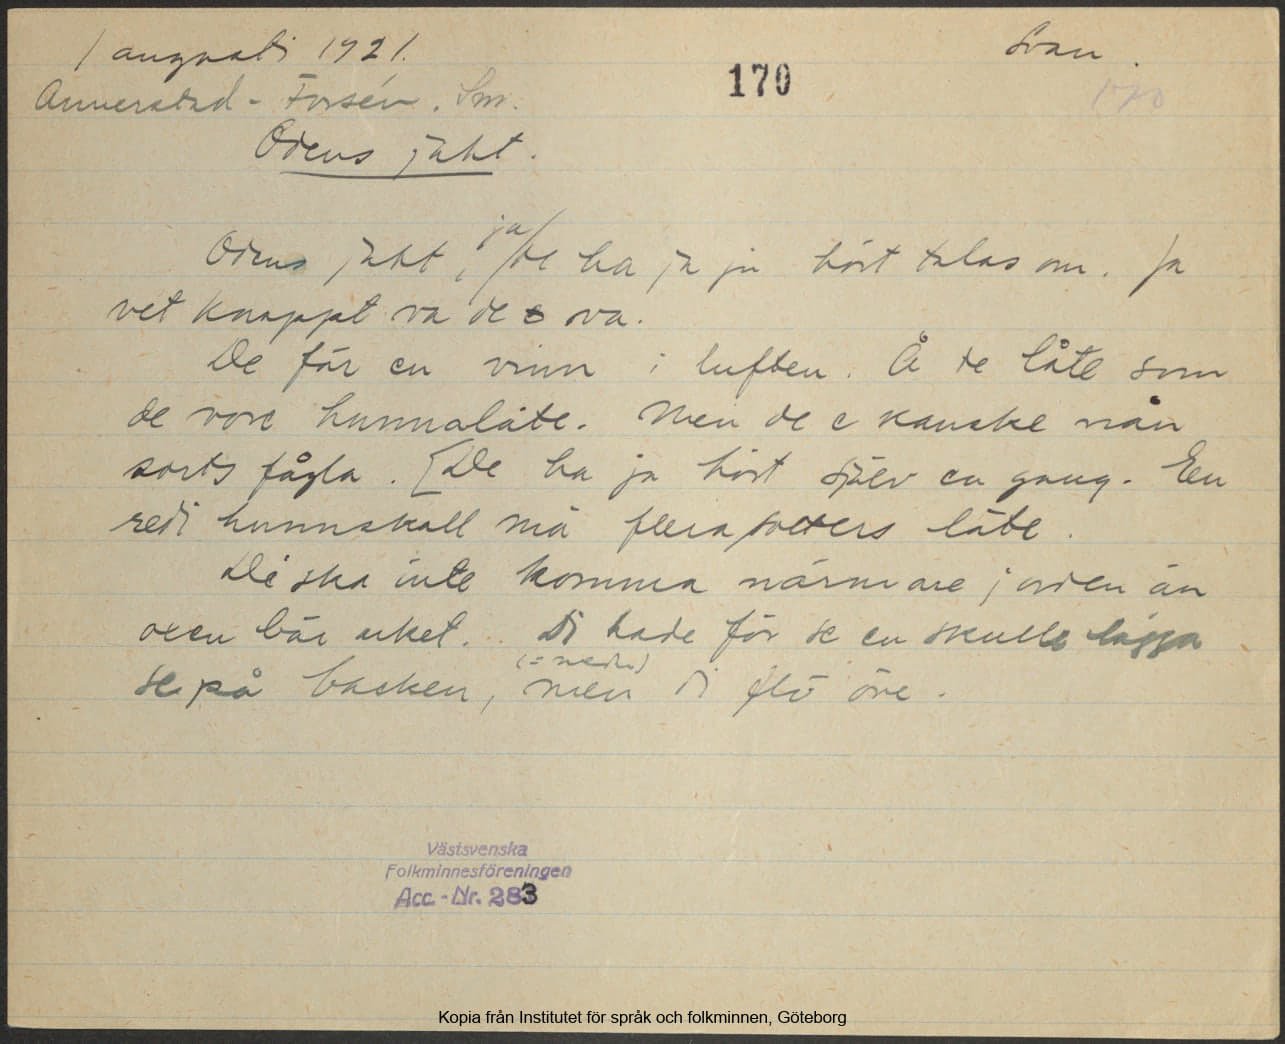 1 augusti 1921.
Svan.
170
170
Annerstad - Forsén. Sm.
Odens jakt.
Odens jakt, ja/de ha ja ju hört talas om. Ja
vet knappt va de va.
De får en vinn i luften. Å de låte som
de vore hunnalåte. Men de e kanske nån
sorts fågla. [De ha ja hört själv en gang. En
redi hunnskall må flera sorters låte.
Di ska inte komma närmare jorden än
oxen bär oket. Di hade för se en skulle lägga
se på basken, men di flö öve.
Västsvenska
Folkminnesföreningen
Acc. - Nr. 283
Kopia från Institutet för språk och folkminnen, Göteborg